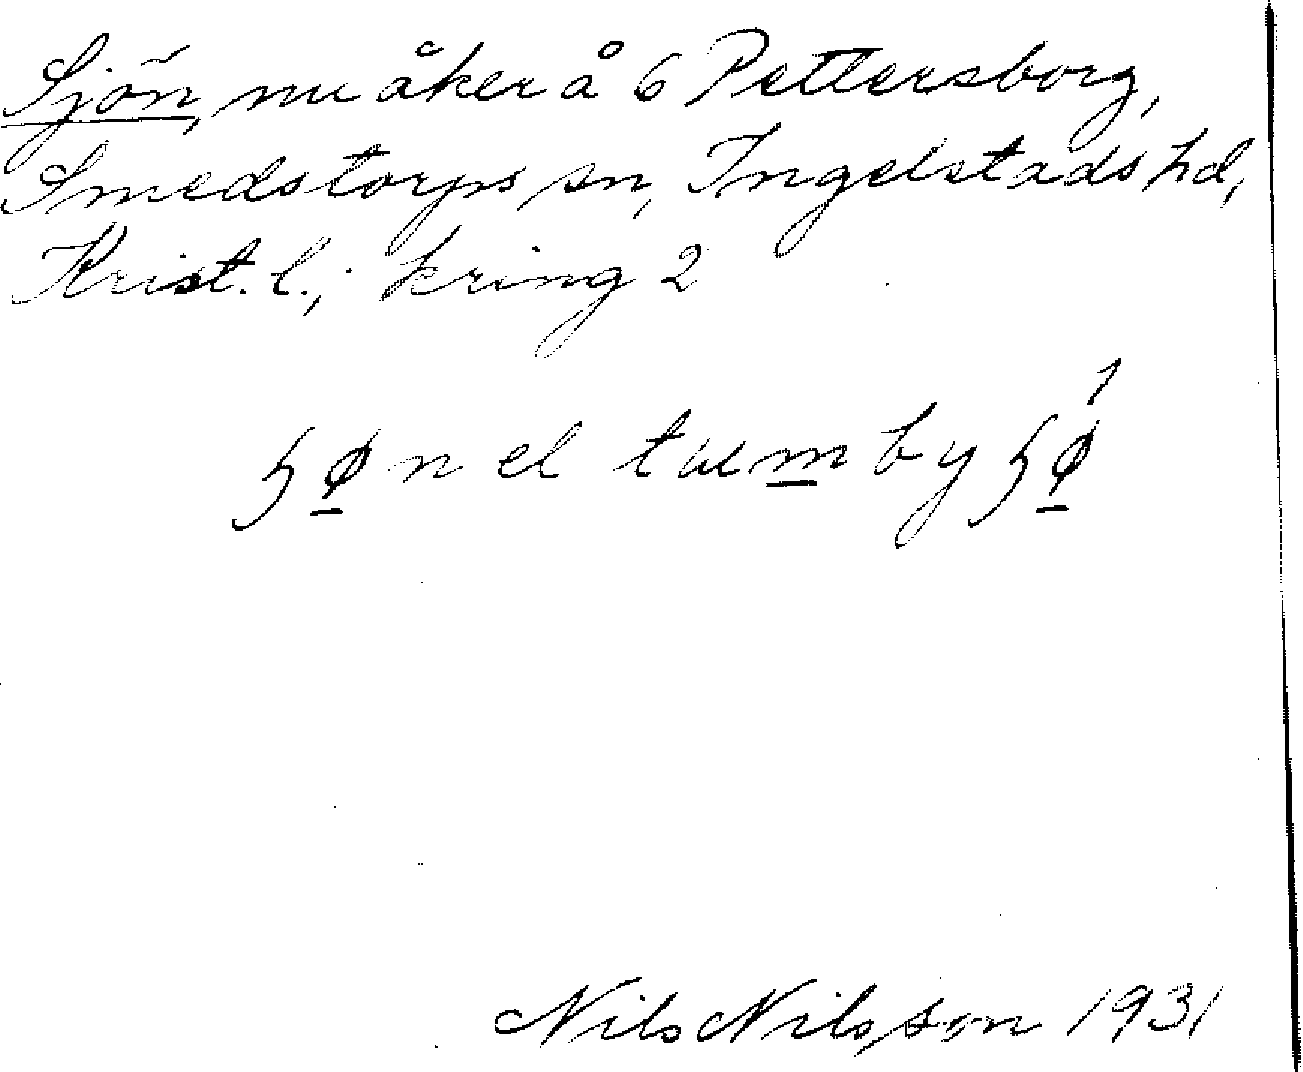 Sjön, nu åker å 6 Pettersborg,
Smedstorps sn, Ingelstads hd,
Krist. l.; kring 2
ʃø̠n el tʉm̠by ʃǿ̠
Nils Nilsson 1931